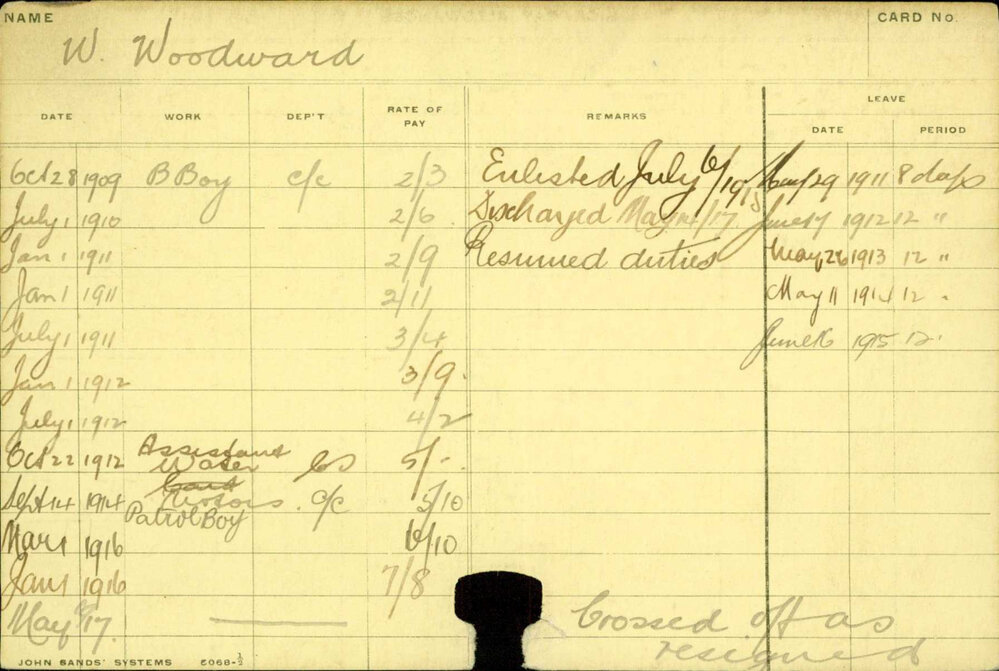 NAME
CARD NO.
W. Woodward
DATE WORK DEP'T RATE OF PAY REMARKS LEAVE
DATE PERIOD
Oct 28 1909 B Boy c/c 2/3 Enlisted July 6/1915 May 29 1911 8 days
July 1 1910 2/6 Discharged May /17. June 17 1912 12 "
Jan 1 1911 2/9 Resumed duties May 26 1913 12 "
Jan 1 1911 2/11 May 11 1914 12 "
July 1 1911 3/4 June 16 1915 12 "
Jan 1 1912 3/9.
July 1 1912 4/2
Oct 22 1912 Assistant Water 5/-.
Sept 14 1914 Motors. c/c 5/10
Patrol Boy
Mar 1 1916 6/10
Jan 1 1916 7/8
May /17.
Crossed off as
resigned
JOHN SANDS' SYSTEMS 6068-½